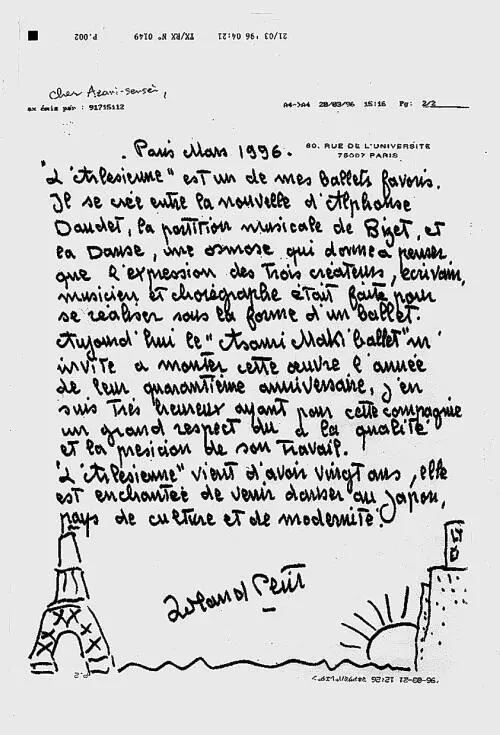 21/03 '96 04:21 TX/RX N° 0149 P.002
Cher Azari-sensei,
ex émis par : 91715112 A4->A4 20/03/96 15:16 Pg: 2/2
60. RUE DE L'UNIVERSITE
75007 PARIS
. Paris Mars 1996.
"L'Arlesienne" est un de mes ballets favoris.
Il se crée entre la nouvelle d'Alphonse
Daudet, la partition musicale de Bizet, et
la Danse, une osmose qui donne à penser
que l'expression des trois créateurs, écrivain,
musicien et chorégraphe était faite pour
se réaliser sous la forme d'un ballet.
Aujourd'hui le "Asami Maki ballet" m'
invite a monter cette œuvre l'année
de leur quarantième anniversaire, j'en
suis très heureux ayant pour cette compagnie
un grand respect du a la qualité
et la présicion de son travail.
"L'Arlesienne" vient d'avoir vingt ans, elle
est enchantée de venir danser au Japon,
pays de culture et de modernité.
Roland Petit
P.2